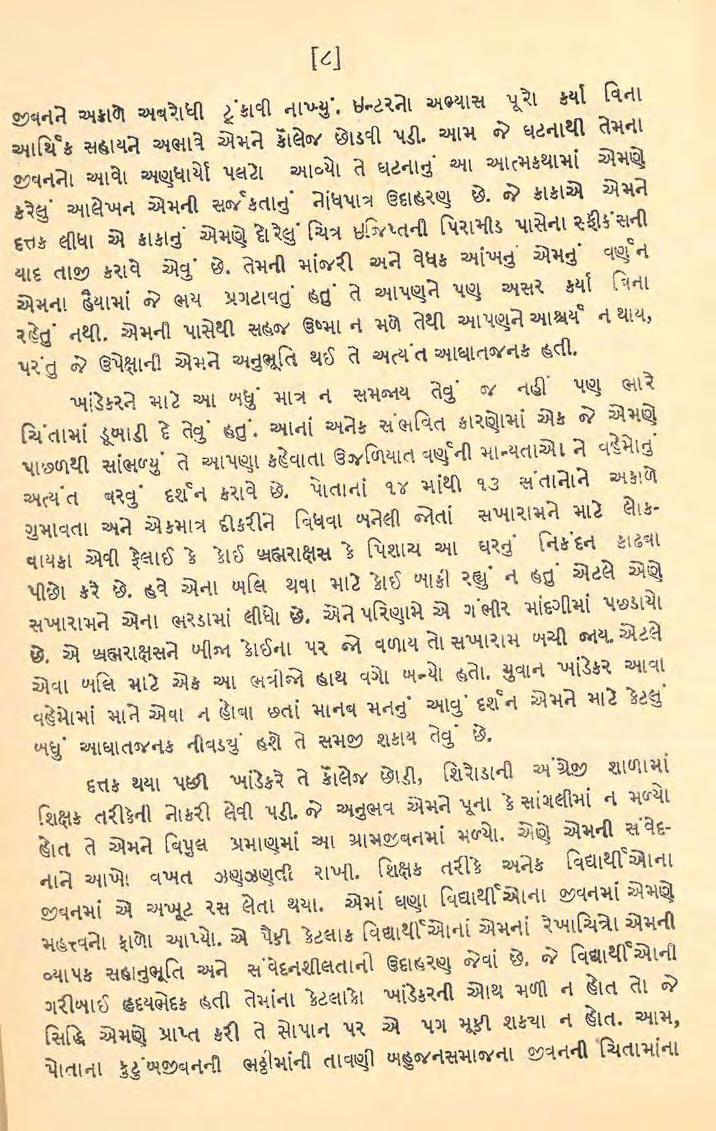 [૮]
જીવનને અકાળે અવરોધી ટૂંકાવી નાખ્યું. ઇન્ટરનો અભ્યાસ પૂરો કર્યા વિના
આર્થિક સહાયને અભાવે એમને કૉલેજ છોડવી પડી. આમ જે ઘટનાથી તેમના
જીવનનો આવો અણધાર્યો પલટો આવ્યો તે ઘટનાનું આ આત્મકથામાં એમણે
કરેલું આલેખન એમની સર્જકતાનું નોંધપાત્ર ઉદાહરણ છે. જે કાકાએ એમને
દત્તક લીધા એ કાકાનું એમણે દોરેલું ચિત્ર ઇજિપ્તની પિરામીડ પાસેના સ્ફીંકસની
યાદ તાજી કરાવે એવું છે. તેમની માંજરી અને વેધક આંખનું એમનું વર્ણન
એમના હૈયામાં જે ભય પ્રગટાવતું હતું તે આપણને પણ અસર કર્યા વિના
રહેતું નથી. એમની પાસેથી સહજ ઉષ્મા ન મળે તેથી આપણને આશ્ચર્ય ન થાય,
પરંતુ જે ઉપેક્ષાની એમને અનુભૂતિ થઈ તે અત્યંત આઘાતજનક હતી.
ખાંડેકરને માટે આ બધું માત્ર ન સમજાય તેવું જ નહીં પણ ભારે
ચિંતામાં ડૂબાડી દે તેવું હતું. આનાં અનેક સંભવિત કારણોમાં એક જે એમણે
પાછળથી સાંભળ્યું તે આપણા કહેવાતા ઉજળિયાત વર્ણની માન્યતાઓ ને વહેમોનું
અત્યંત વરવું દર્શન કરાવે છે. પોતાનાં ૧૪ માંથી ૧૩ સંતાનોને અકાળે
ગુમાવતા અને એકમાત્ર દીકરીને વિધવા બનેલી જોતાં સખારામને માટે લોક-
વાયકા એવી ફેલાઈ કે કોઈ બ્રહ્મરાક્ષસ કે પિશાચ આ ઘરનું નિકંદન કાઢવા
પીછો કરે છે. હવે એના બલિ થવા માટે કોઈ બાકી રહ્યું ન હતું એટલે એણે
સખારામને એના ભરડામાં લીધો છે. એને પરિણામે એ ગંભીર માંદગીમાં પછડાયો
છે. એ બ્રહ્મરાક્ષસને બીજા કોઈના પર જો વળાય તો સખારામ બચી જાય. એટલે
એવા બલિ માટે એક આ ભત્રીજો હાથ વગો બન્યો હતો. યુવાન ખાંડેકર આવા
વહેમોમાં માને એવા ન હોવા છતાં માનવ મનનું આવું દર્શન એમને માટે કેટલું
બધું આઘાતજનક નીવડયું હશે તે સમજી શકાય તેવું છે.
દત્તક થયા પછી ખાંડેકરે તે કૉલેજ છોડી, શિરોડાની અંગ્રેજી શાળામાં
શિક્ષક તરીકેની નોકરી લેવી પડી. જે અનુભવ એમને પૂના કે સાંગલીમાં ન મળ્યો
હોત તે એમને વિપુલ પ્રમાણમાં આ ગ્રામજીવનમાં મળ્યો. એણે એમની સંવેદ-
નાને આખો વખત ઝણઝણતી રાખી. શિક્ષક તરીકે અનેક વિદ્યાર્થીઓના
જીવનમાં એ અખૂટ રસ લેતા થયા. એમાં ઘણા વિદ્યાર્થીઓના જીવનમાં એમણે
મહત્ત્વનો ફાળો આપ્યો. એ પૈકી કેટલાક વિદ્યાર્થીઓનાં એમનાં રેખાચિત્રો એમની
વ્યાપક સહાનુભૂતિ અને સંવેદનશીલતાની ઉદાહરણ જેવાં છે. જે વિદ્યાર્થીઓની
ગરીબાઈ હૃદયભેદક હતી તેમાંના કેટલાકો ખાંડેકરની ઓથ મળી ન હોત તો જે
સિદ્ધિ એમણે પ્રાપ્ત કરી તે સોપાન પર એ પગ મૂકી શકયા ન હોત. આમ,
પોતાના કુટુંબજીવનની ભઠ્ઠીમાંની તાવણી બહુજનસમાજના જીવનની ચિતામાંના